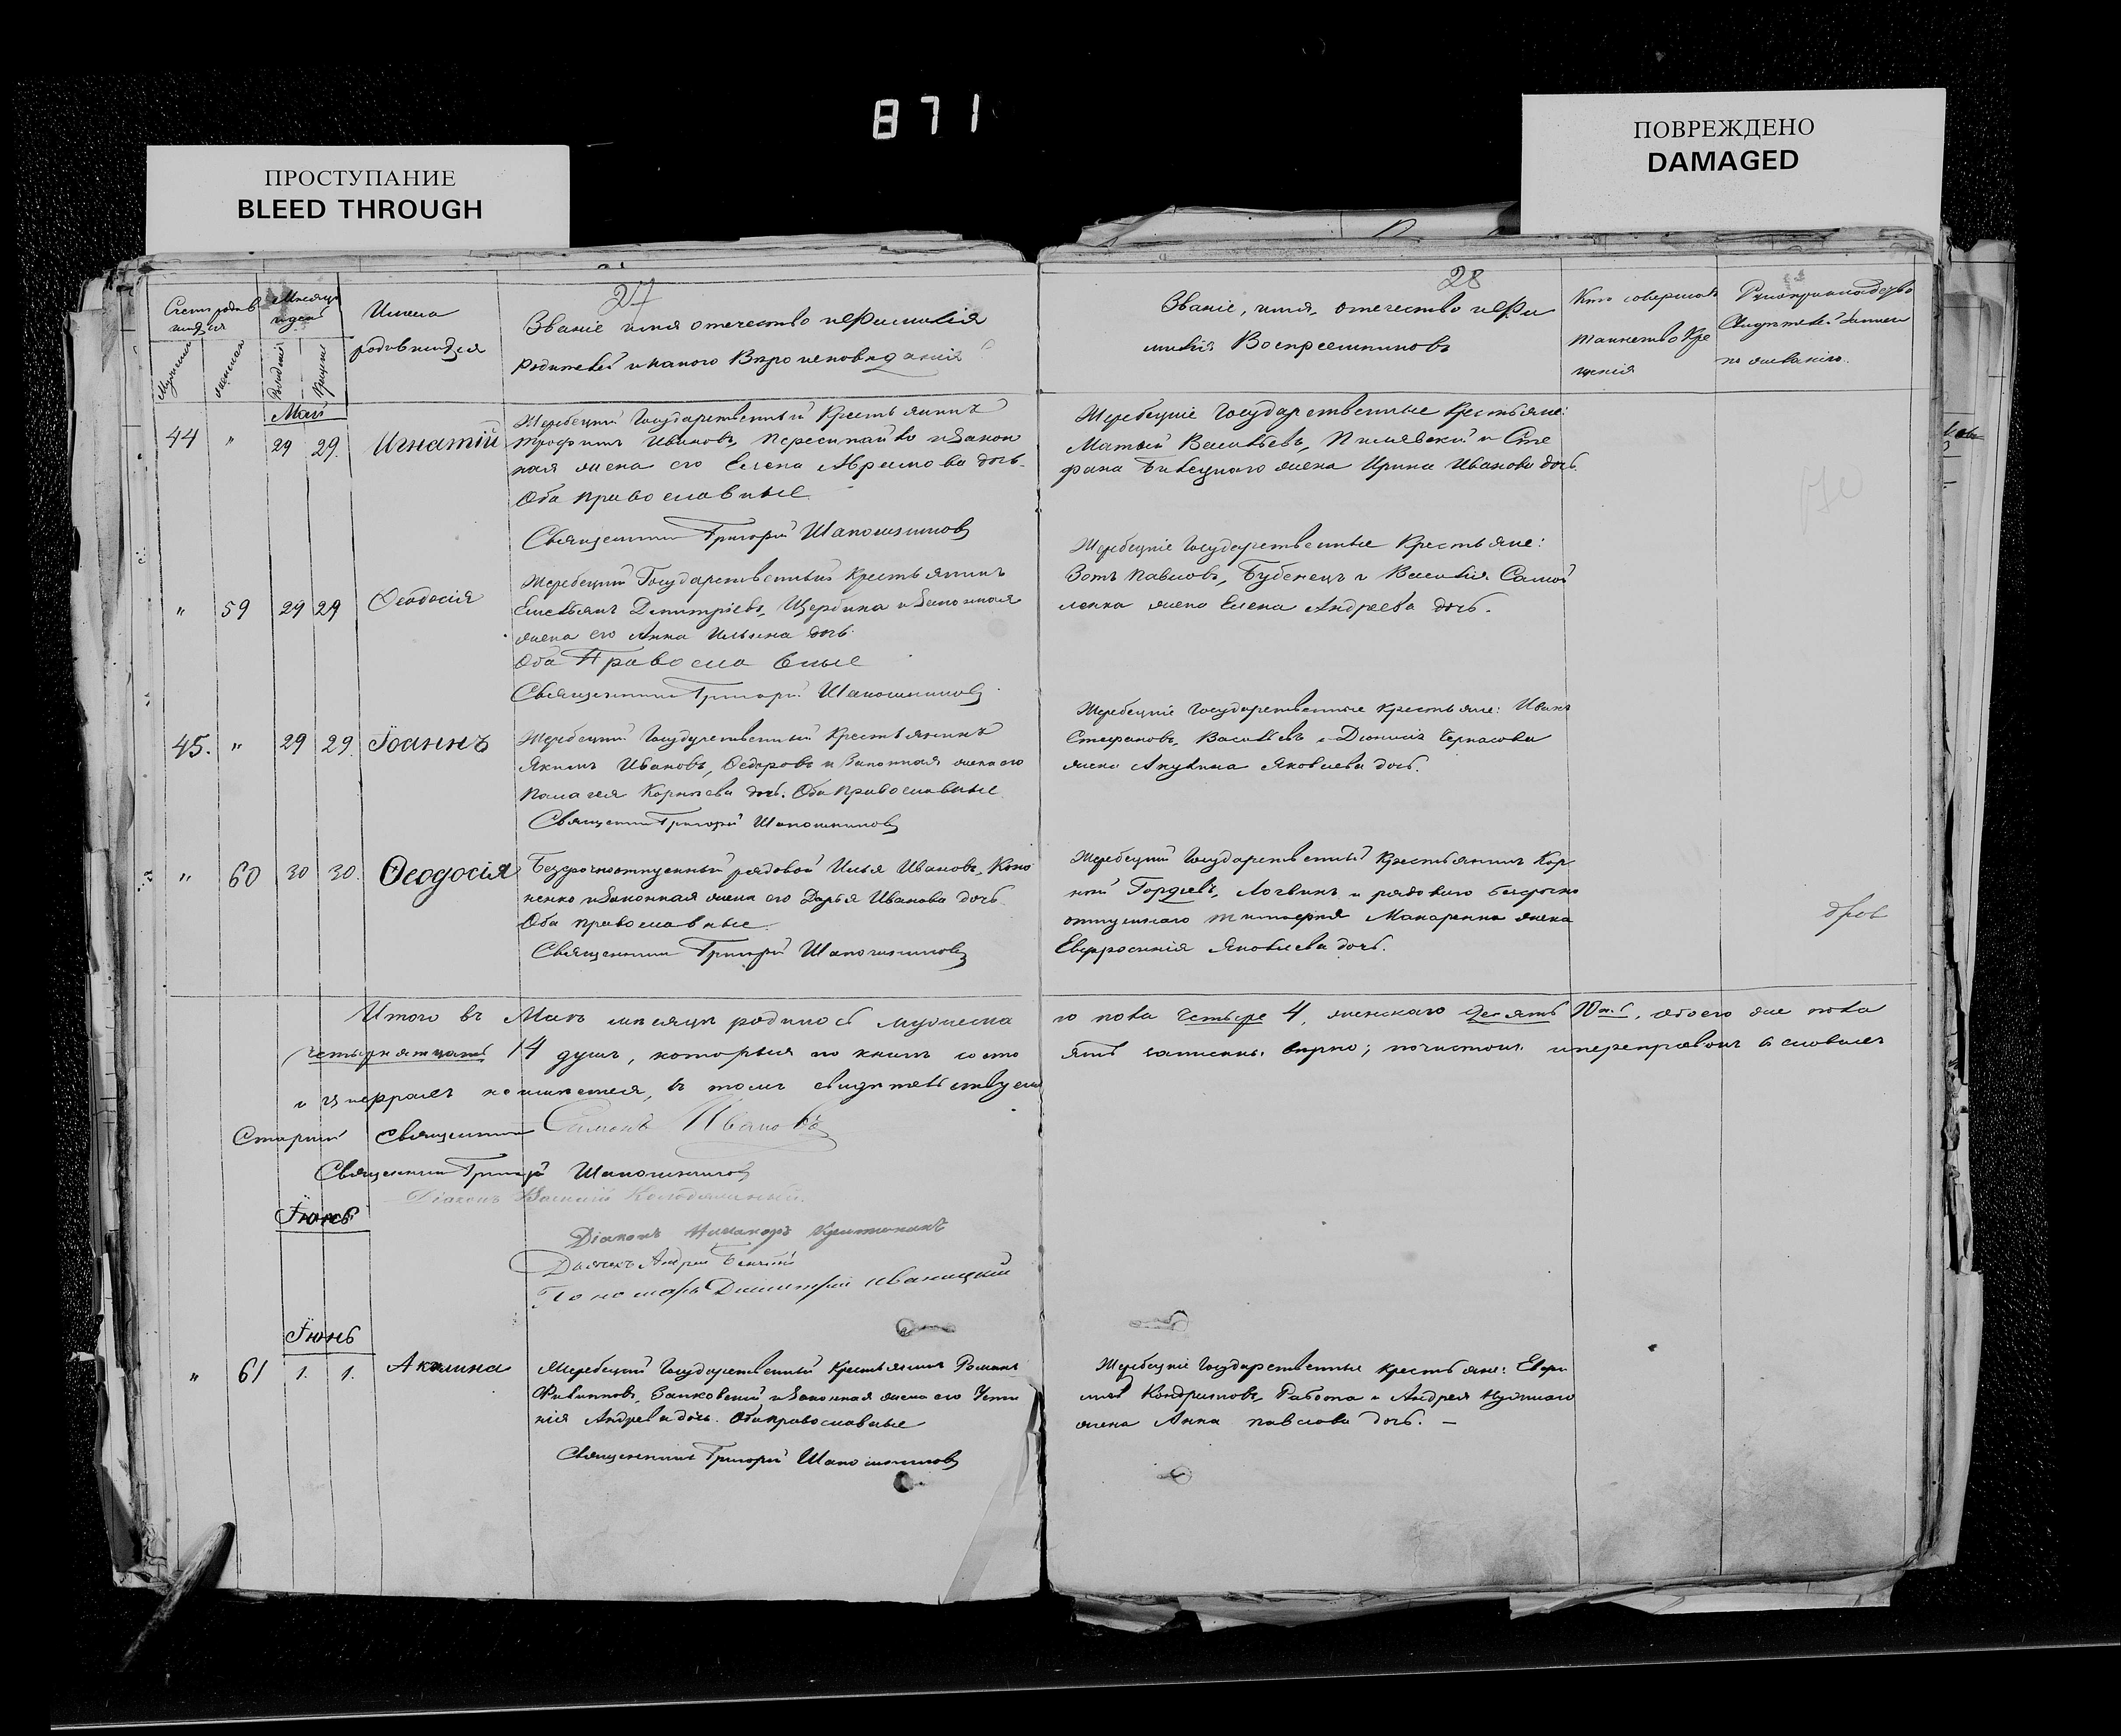 871
ПРОСТУПАНИЕ
BLEED THROUGH
ПОВРЕЖДЕНО
DAMAGED
27
Счетъ родив
шихся
Мѣсяцъ
и день
Имена
родившихся
Званіе имя отечество и фамилія
родителей и какого Вѣроисповѣданія
Мужеска
женска
Рожденія
Крещенія
Май
44 " 29 29. Игнатій
Жеребецкій Государственный Крестьянинъ
Трофимъ Ивановъ, Пересипайко и Закон
ная жена его Елена Абрамова дочь.
Оба православные
Священникъ Григорій Шапошниковъ
" 59 29 29 Ѳеодосія
Жеребецкій Государственный Крестьянинъ
Емельянъ Димитріевъ, Щербина и Законная
жена его Анна Ильина дочь.
Оба Православные
Священникъ Григорій Шапошниковъ
45. " 29 29. Іоаннъ
Жеребецкій Государственный Крестьянинъ
Якимъ Ивановъ, Ѳедоровъ и Законная жена его
Палагея Корнѣева дочь. Оба православные
Священникъ Григорій Шапошниковъ
" 60 30 30. Ѳеодосія
Безсрочноотпускный рядовой Илья Ивановъ, Коно
ненко и Законная жена его Дарья Иванова дочь
Оба православные
Священникъ Григорій Шапошниковъ
Итого въ Маѣ мѣсяцѣ родилось мужеска
четырнатцать 14 душъ, которыя по книгѣ состо
и цыфрахъ не имѣется, въ томъ свидѣтельствуемъ
Старшій Священникъ Симонъ Ивановъ
Священникъ Григорій Шапошниковъ
Діаконъ Василій
Іюнь
Діаконъ Никаноръ
Дьячекъ Андрей
Пономарь Димитрій Иваницкій
Іюнь
" 61 1. 1. Акилина
Жеребецкій Государственный Крестьянинъ Романъ
Филиповъ, Заиковскій и Законная жена его Усти
нія Андреева дочь. Оба православные
Священникъ Григорій Шапошниковъ
28
Званіе, имя, отечество и фа
милія Воспреемниковъ
Кто совершалъ
таинство Кре
щенія
Рукоприкладство
Свидѣтелей записи
по желанію.
Жеребецкіе Государственные Крестьяне:
Матвій Васильевъ, и Сте
фана жена Ирина Иванова дочь.
Жеребецкіе Государственные Крестьяне:
Зотъ Павловъ, Бубенецъ и Василія Самой
ленка жена Елена Андреева дочь.
Жеребецкіе Государственные Крестьяне: Иванъ
Стефановъ, Васильевъ и Діонисія Черкасова
жена Акулина Яковлева дочь.
Жеребецкій Государственный Крестьянинъ Кор
ній Гордѣевъ, Логвинъ и рядоваго безсрочно
отпускнаго Макаренка жена
Евфросинія Яковлева дочь.
го пола четыре 4, женскаго десять 10ть, обоего же пола
ятъ записаны вѣрно; почистокъ и переправокъ въ словахъ
Жеребецкіе Государственные крестьяне: Евфи
мій Кондратовъ, Работа и Андрея
жена Анна Павлова дочь. —